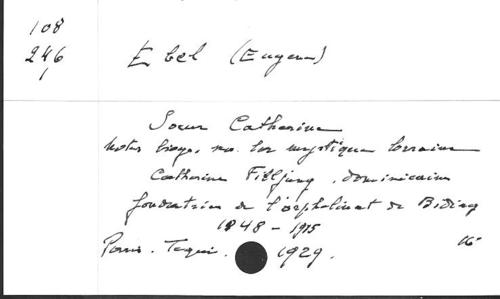 108
246
1
Ebel (Eugene)
Soeur Catherine
Notes biogr. sur la mystique lorraine
Catherine Filljung, dominicaine
fondatrice de l'orphelinat de Biding
1848 - 1915
Paris. Tequi. 1929. 16°